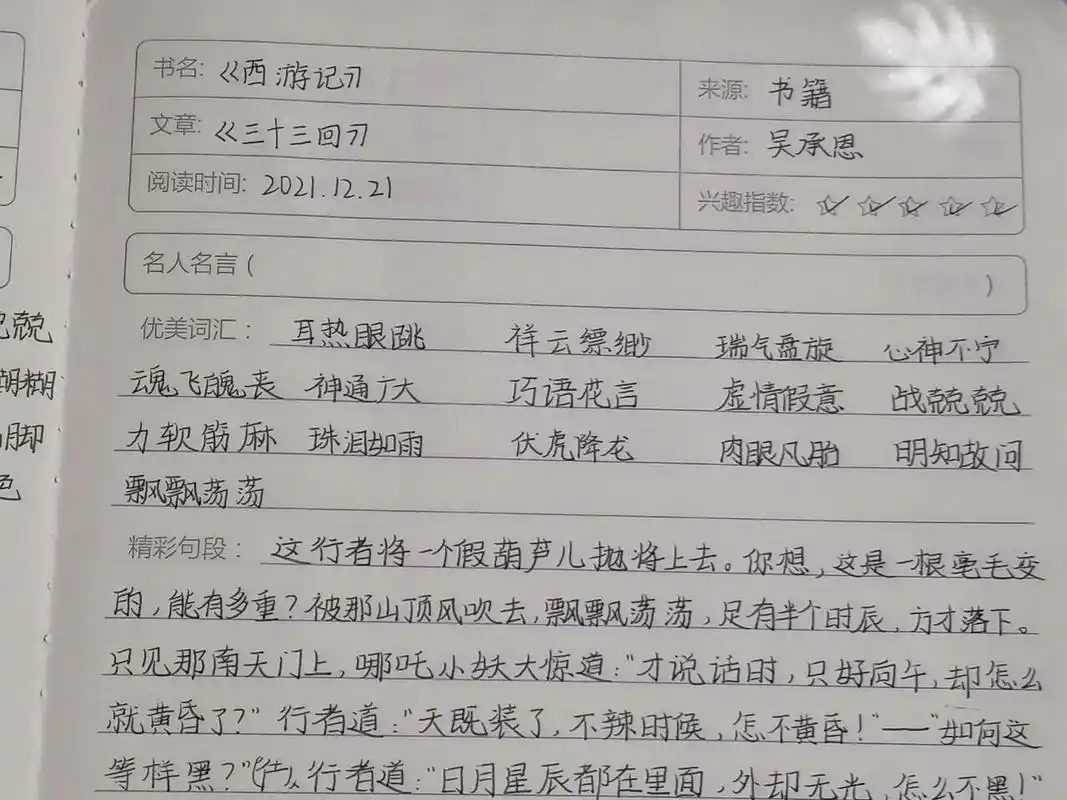 书名:《西游记》 来源: 书籍
文章:《三十三回》 作者: 吴承恩
阅读时间: 2021.12.21 兴趣指数: ☆ ☆ ☆ ☆ ☆
名人名言( )
兢兢
糊糊
脚
色
优美词汇: 耳热眼跳 祥云缥缈 瑞气盘旋 心神不宁
魂飞魄丧 神通广大 巧语花言 虚情假意 战兢兢
力软筋麻 珠泪如雨 伏虎降龙 肉眼凡胎 明知故问
飘飘荡荡
精彩句段: 这行者将一个假葫芦儿抛将上去。你想,这是一根毫毛变
的,能有多重?被那山顶风吹去,飘飘荡荡,足有半个时辰,方才落下。
只见那南天门上,哪吒小妖大惊道:"才说话时,只好向午,却怎么
就黄昏了?"行者道:"天既装了,不辨时候,怎不黄昏!"——"如何这
等样黑?"行者道:"日月星辰都在里面,外却无光,怎么不黑!"